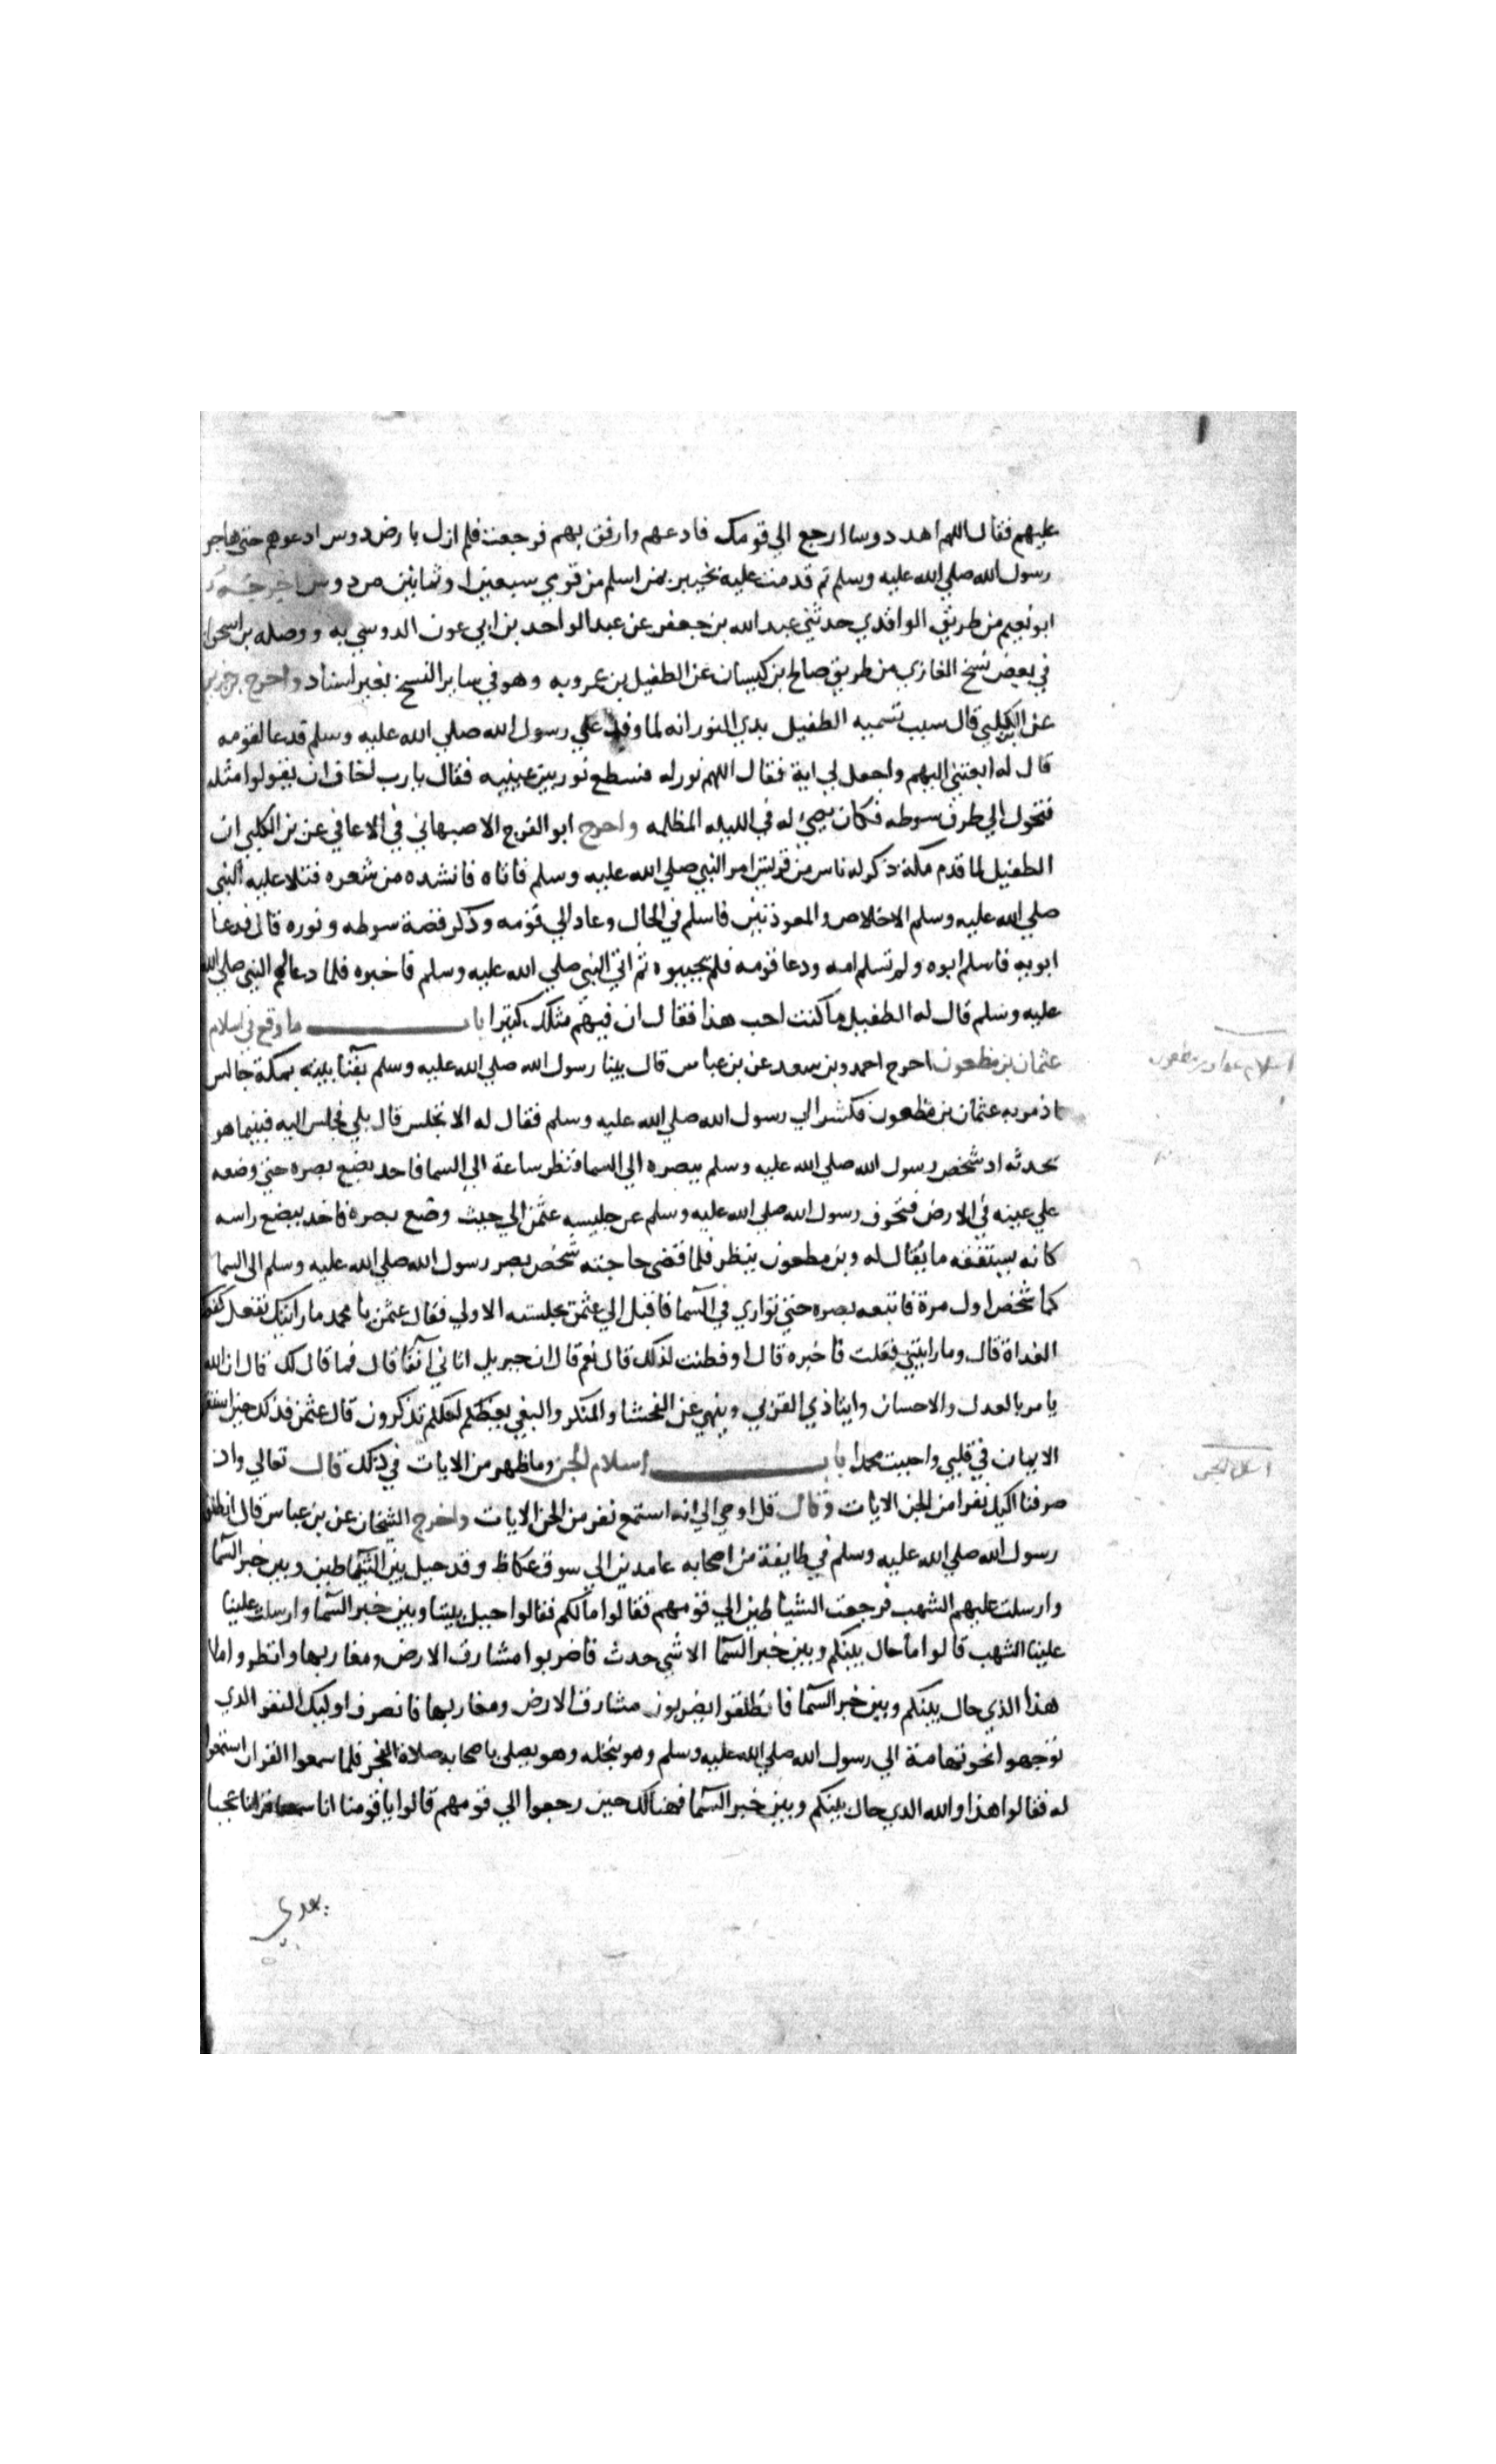 عليهم فقال اللهم اهد دوسا ارجع الي قومك فادعهم وارفق بهم فرجعت فلم ازل بارض دوس ادعوهم حتي هاجر
رسول الله صلي الله عليه وسلم ثم قدمت عليه بخيبر بمن اسلم من قومي سبعين او ثمانين من دوس
ابو نعيم من طريق الواقدي حدثني عبد الله بن جعفر عن عبد الواحد بن ابي عون الدوسي به ووصله بن اسحق
في بعض نسخ المغازي من طريق صالح بن كيسان عن الطفيل بن عمرو به وهو في ساير النسخ بغير اسناد واخرج
عن الكلبي قال سبب تسميه الطفيل بذي النور انه لما وفد علي رسول الله صلي الله عليه وسلم فدعا لقومه
قال له ابعثني اليهم واجعل لي اية فقال اللهم نور له فسطع نور بين عينيه فقال يا رب اخاف ان يقولوا مثله
فتحول الي طرف سوطه فكان يضيء له في الليله المظلمه واخرج ابو الفرج الاصبهاني في الاغاني عن بن الكلبي ان
الطفيل لما قدم مكة ذكر له ناس من قريش امر النبي صلي الله عليه وسلم فاتاه فانشده من شعره فتلا عليه النبي
صلي الله عليه وسلم الاخلاص والمعوذتين فاسلم في الحال وعاد الي قومه وذكر قصة سوطه ونوره قال فدعا
ابويه فاسلم ابوه ولم تسلم امه ودعا قومه فلم يجيبوه ثم اتي النبي صلي الله عليه وسلم فاخبره فلما دعا لهم النبي صلي الله
عليه وسلم قال له الطفيل ما كنت احب هذا فقال ان فيهم مثلك كثيرا باب ما وقع في اسلام
عثمان بن مظعون اخرج احمد وبن سعد عن بن عباس قال بينا رسول الله صلي الله عليه وسلم بفنا بيته بمكة جالس
اذ مر به عثمان بن مظعون فكشر الي رسول الله صلي الله عليه وسلم فقال له الا تجلس قال بلي فجلس اليه فبينما هو
يحدثه اذ شخص رسول الله صلي الله عليه وسلم ببصره الي السما فنظر ساعة الي السما فاخد يضع بصره حتي وضعه
علي عينه في الارض فتحرف رسول الله صلي الله عليه وسلم عن جليسه عثمن الي حيث وضع بصره فاخد ينغض راسه
كانه يستفقه ما يقال له وبن مظعون ينظر فلما قضي حاجته شخص بصر رسول الله صلي الله عليه وسلم الي السما
كما شخص اول مرة فاتبعه بصره حتي تواري في السما فاقبل الي عثمن بجلسته الاولي فقال عثمن يا محمد ما رايتك تفعل كفعلك
الغداة قال وما رايتني فعلت فاخبره قال اوفطنت لذلك قال نعم قال ان جبريل اتاني آنفا قال فما قال لك قال ان الله
يامر بالعدل والاحسان وايتا ذي القربي وينهي عن الفحشا والمنكر والبغي يعظكم لعلكم تذكرون قال عثمن فذلك حين استقر
الايمان في قلبي واحببت محمدا باب اسلام الجن وما ظهر من الايات في ذلك قال تعالي واذ
صرفنا اليك نفرا من الجن الايات وقال قل اوحي الي انه استمع نفر من الجن الايات واخرج الشيخان عن بن عباس قال انطلق
رسول الله صلي الله عليه وسلم في طايفة من اصحابه عامدين الي سوق عكاظ وقد حيل بين الشياطين وبين خبر السما
وارسلت عليهم الشهب فرجعت الشياطين الي قومهم فقالوا ما لكم فقالوا حيل بيننا وبين خبر السما وارسلت علينا
علينا الشهب قالوا ما حال بينكم وبين خبر السما الا شي حدث فاضربوا مشارق الارض ومغاربها وانظروا ما
هذا الذي حال بينكم وبين خبر السما فانطلقوا يضربون مشارق الارض ومغاربها فانصرف اوليك النفر الذي
توجهوا نحو تهامة الي رسول الله صلي الله عليه وسلم وهو بنخله وهو يصلي باصحابه صلاة الفجر فلما سمعوا القران استمعوا
له فقالوا هذا والله الذي حال بينكم وبين خبر السما فهنالك حين رجعوا الي قومهم قالوا يا قومنا انا سمعنا قرانا عجبا
يهدي
اسلام الجن